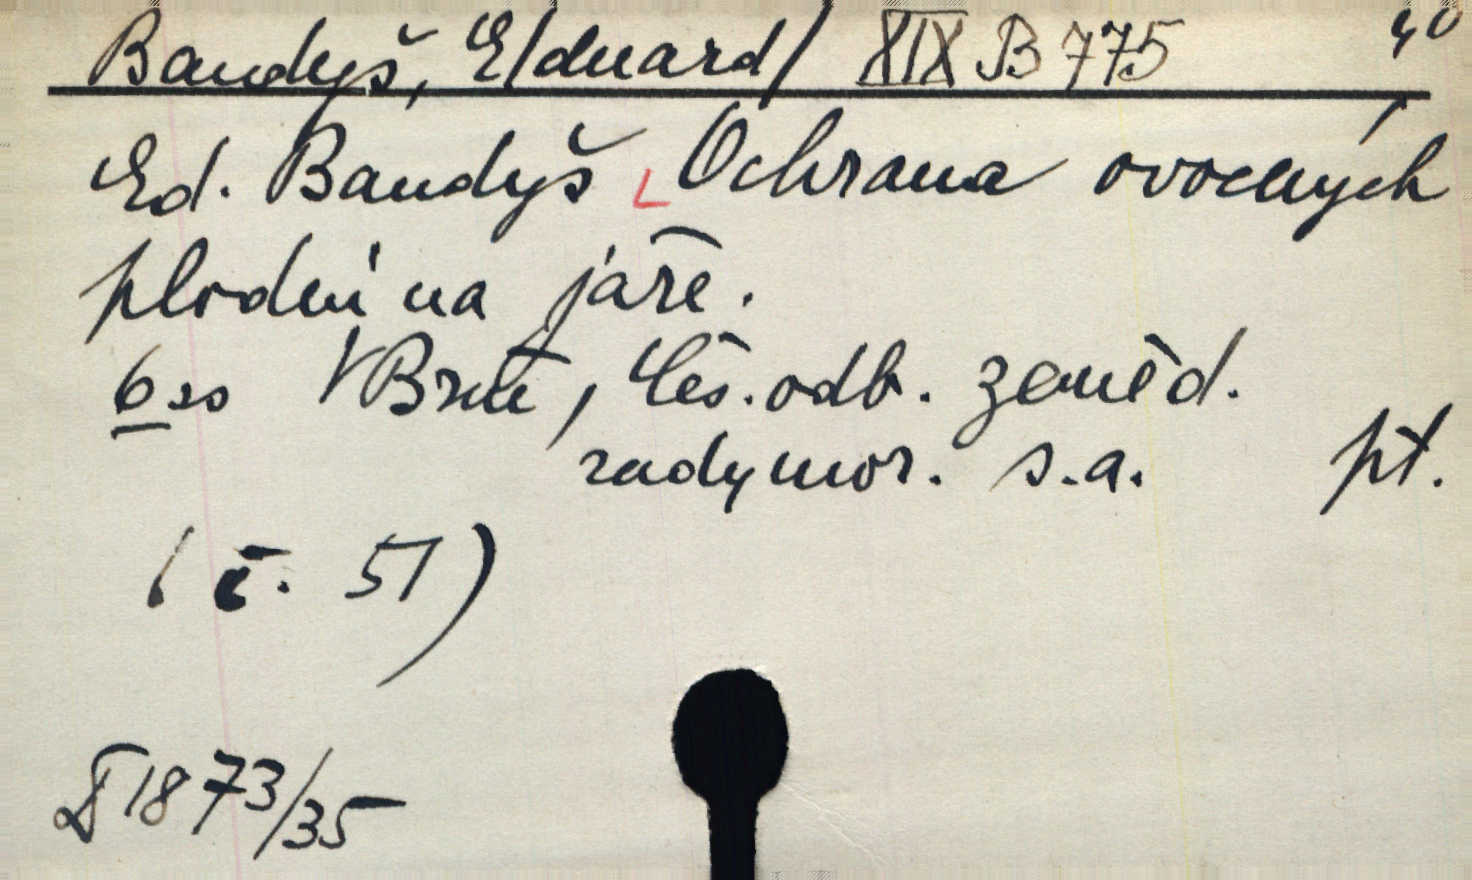 Baudyš, E/duard/ XIX B 775 40
Ed. Baudyš Ochrana ovocných
plodin na jaře.
6 ss V Brně, Čes. odb. zeměd.
rady mor. s.a. př.
(č. 51)
1873/35